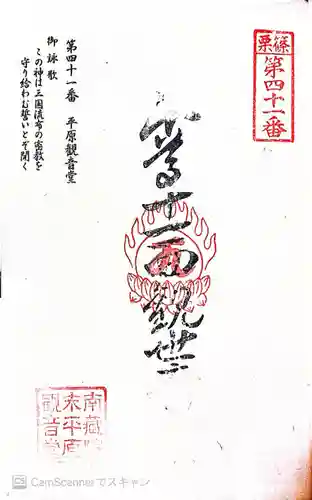 篠栗
第四十一番
奉
十一面観世
第四十一番　平原観音堂
御詠歌
この神は三国流布の密教を
守り給わむ誓いとぞ聞く
南蔵院
平原
観音堂
CamScannerでスキャン